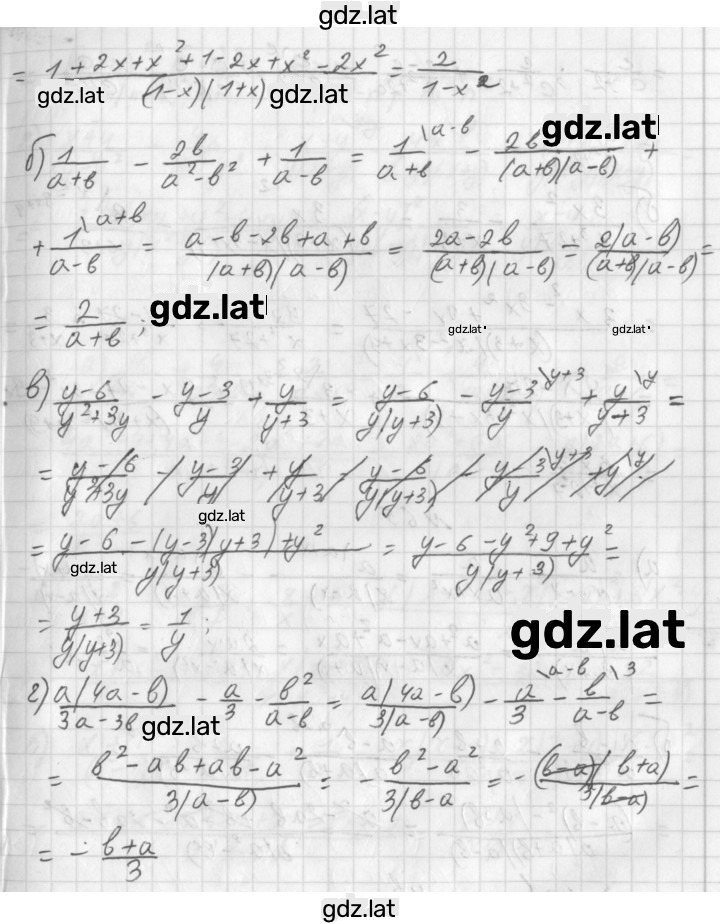 gdz.lat
= (1+2x+x²+1-2x+x²-2x²)/((1-x)(1+x)) = 2/(1-x²)
gdz.lat gdz.lat
gdz.lat
б) 1/(a+b) - 2b/(a²-b²) + 1/(a-b) = 1\a-b/(a+b) - 2b/((a+b)(a-b)) +
+ 1\a+b/(a-b) = (a-b-2b+a+b)/((a+b)(a-b)) = (2a-2b)/((a+b)(a-b)) = 2(a-b)/((a+b)(a-b)) =
= 2/(a+b);
gdz.lat gdz.lat gdz.lat
в) (y-6)/(y²+3y) - (y-3)/y + y/(y+3) = (y-6)/(y(y+3)) - (y-3)\y+3/y + y\y/(y+3) =
= (y-6)/(y²+3y) - (y-3)/y + y/(y+3) = (y-6)/(y(y+3)) - (y-3)\y+3/y + y\y
gdz.lat
= (y-6-(y-3)(y+3)+y²)/(y(y+3)) = (y-6-y²+9+y²)/(y(y+3)) =
gdz.lat
= (y+3)/(y(y+3)) = 1/y;
gdz.lat
г) a(4a-b)/(3a-3b) - a/3 - b²/(a-b) = a(4a-b)/(3(a-b)) - a\a-b/3 - b\3/(a-b) =
gdz.lat
= (b²-ab+ab-a²)/(3(a-b)) = - (b²-a²)/(3(b-a) = - (b-a)(b+a)/(3(b-a)) =
= - (b+a)/3
gdz.lat